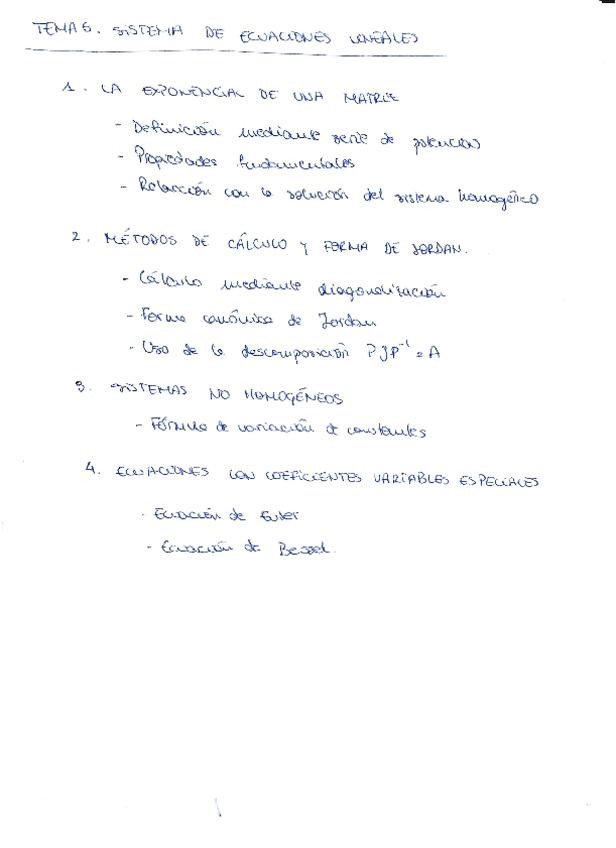 TEMA 6. SISTEMA DE ECUACIONES LINEALES
1. LA EXPONENCIAL DE UNA MATRIZ
- Definición mediante serie de potencias
- Propiedades fundamentales
- Relación con la solución del sistema homogéneo
2. MÉTODOS DE CÁLCULO Y FORMA DE JORDAN.
- Cálculo mediante diagonalización
- Forma canónica de Jordan
- Uso de la descomposición PJP⁻¹ = A
3. SISTEMAS NO HOMOGÉNEOS
- Fórmula de variación de constantes
4. ECUACIONES CON COEFICIENTES VARIABLES ESPECIALES
- Ecuación de Euler
- Ecuación de Bessel.